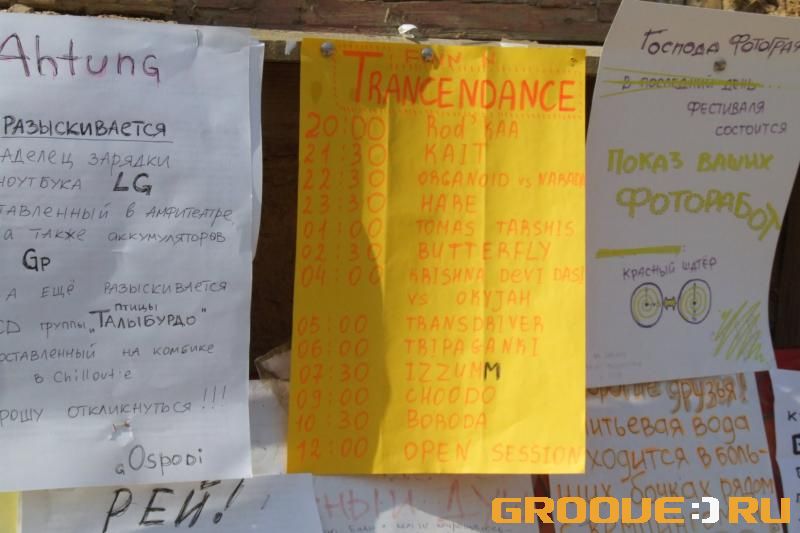 Ahtung
РАЗЫСКИВАЕТСЯ
ЗАРЯДКИ
LG
В АМФИТЕАТРЕ,
А ТАКЖЕ АККУМУЛЯТОРОВ
GP
А ЕЩЁ РАЗЫСКИВАЕТСЯ
CD ГРУППЫ „ПТИЦЫ ТАЛЫБУРДО"
НА КОМБИКЕ
В Chillout'е
ОТКЛИКНУТЬСЯ !!!
GOspodi
РЕЙ!
TRANCENDANCE
20:00 Rod'KAA
21:30 KAIT
22:30 ORGANOID vs
23:30 HARE
01:00 TOMAS TARSHIS
02:30 BUTTERFLY
04:00 KRISHNA DEVI DASI
vs OKYJAH
05:00 TRANSDRIVER
06:00 TRIPAGANKI
07:30 IZZUMM
09:00 CHOODO
10:30 BORODA
12:00 OPEN SESSION
Господа
В ПОСЛЕДНИЙ ДЕНЬ
ФЕСТИВАЛЯ
СОСТОИТСЯ
ПОКАЗ ВАШИХ
ФОТОРАБОТ
КРАСНЫЙ ШАТЁР
друзья!
вода
в боль-
бочках рядом
GROOVE:)RU